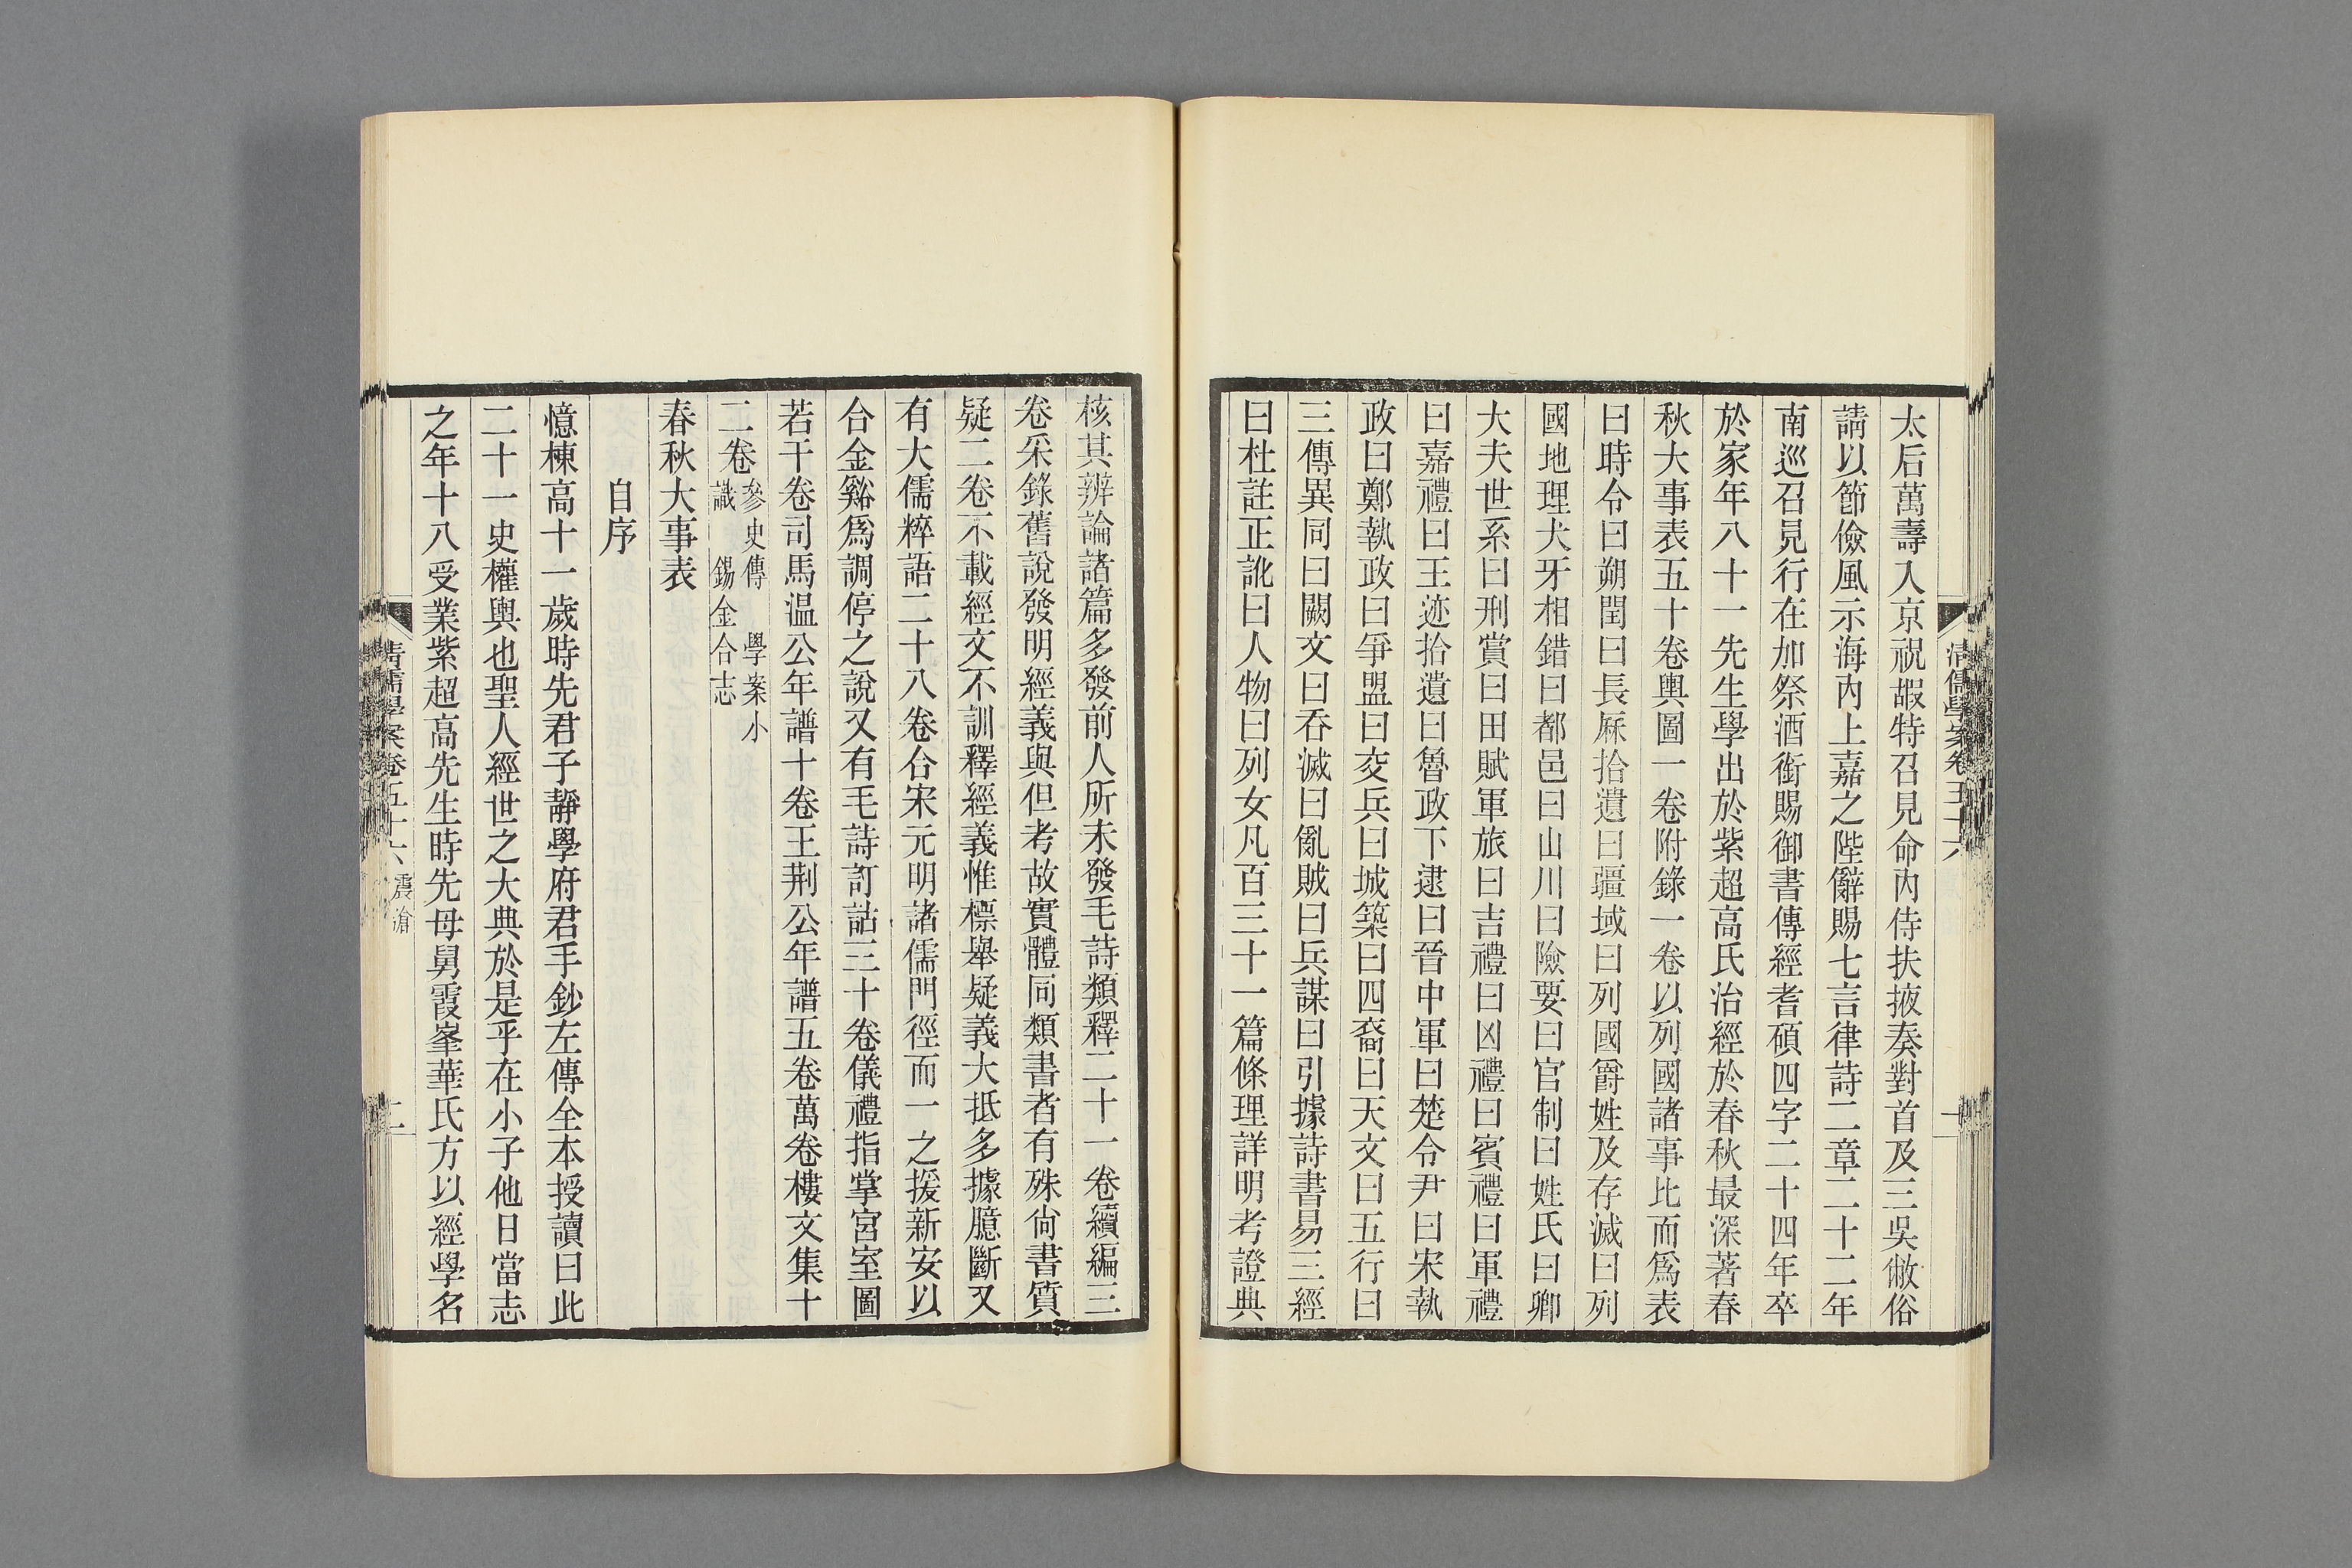 太后萬壽入京祝嘏特召見命內侍扶掖奏對首及三吳敝俗
請以節儉風示海內上嘉之陛辭賜七言律詩二章二十二年
南巡召見行在加祭酒銜賜御書傳經耆碩四字二十四年卒
於家年八十一先生學出於紫超高氏治經於春秋最深著春
秋大事表五十卷輿圖一卷附錄一卷以列國諸事比而爲表
曰時令曰朔閏曰長厤拾遺曰疆域曰列國爵姓及存滅曰列
國地理犬牙相錯曰都邑曰山川曰險要曰官制曰姓氏曰卿
大夫世系曰刑賞曰田賦軍旅曰吉禮曰凶禮曰賓禮曰軍禮
曰嘉禮曰王迹拾遺曰魯政下逮曰晉中軍曰楚令尹曰宋執
政曰鄭執政曰爭盟曰交兵曰城築曰四裔曰天文曰五行曰
三傳異同曰闕文曰吞滅曰亂賊曰兵謀曰引據詩書易三經
曰杜註正訛曰人物曰列女凡百三十一篇條理詳明考證典
清儒學案卷五十六
一
核其辨論諸篇多發前人所未發毛詩類釋二十一卷續編三
卷采錄舊說發明經義與但考故實體同類書者有殊尙書質
疑二卷不載經文不訓釋經義惟標舉疑義大抵多據臆斷又
有大儒粹語二十八卷合宋元明諸儒門徑而一之援新安以
合金谿爲調停之說又有毛詩訂詁三十卷儀禮指掌宮室圖
若干卷司馬温公年譜十卷王荆公年譜五卷萬卷樓文集十
二卷參史傳 學案小
識 錫金合志
春秋大事表
自序
憶棟高十一歲時先君子靜學府君手鈔左傳全本授讀曰此
二十一史權輿也聖人經世之大典於是乎在小子他日當志
之年十八受業紫超高先生時先母舅霞峯華氏方以經學名
清儒學案卷五十六 震滄
二